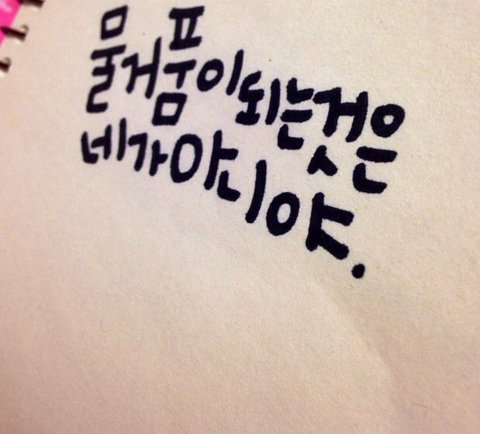 물거품이 되는것은
네가 아니야.